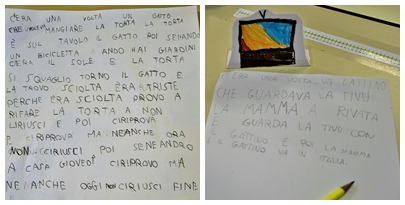 C'ERA UNA VOLTA UN GATTO
MANGIARE LA TORTA LA TORTA
È SUL TAVOLO IL GATTO POI SENANDO
UN BICICLETTA ANDO HAI GIARDINI
C'ERA IL SOLE E LA TORTA
SI SQUAGLIO TORNO IL GATTO E
LA TROVO SCIOLTA ERA TRISTE
PERCHE ERA SCIOLTA PROVO A
RIFARE LA TORTA A NON
URIUSCI E POI CIRIPROVA
E CIRIPROVA MA NEANCHE ORA
NON CIRIUSCI POI SENEANDRO
A CASA GIOVEDI CIRIPROVO MA
NEMANCHE OGGI NON CIRIUSCI FINE
C'ERA UNA VOLTA UN GATTINO
CHE GUARDAVA LA TIVU
LA MAMMA ARIVATA
E GUARDA LA TIVU CON
IL GATTINO E POI LA MAMMA
E IL GATTINO VA IN ITALIA.